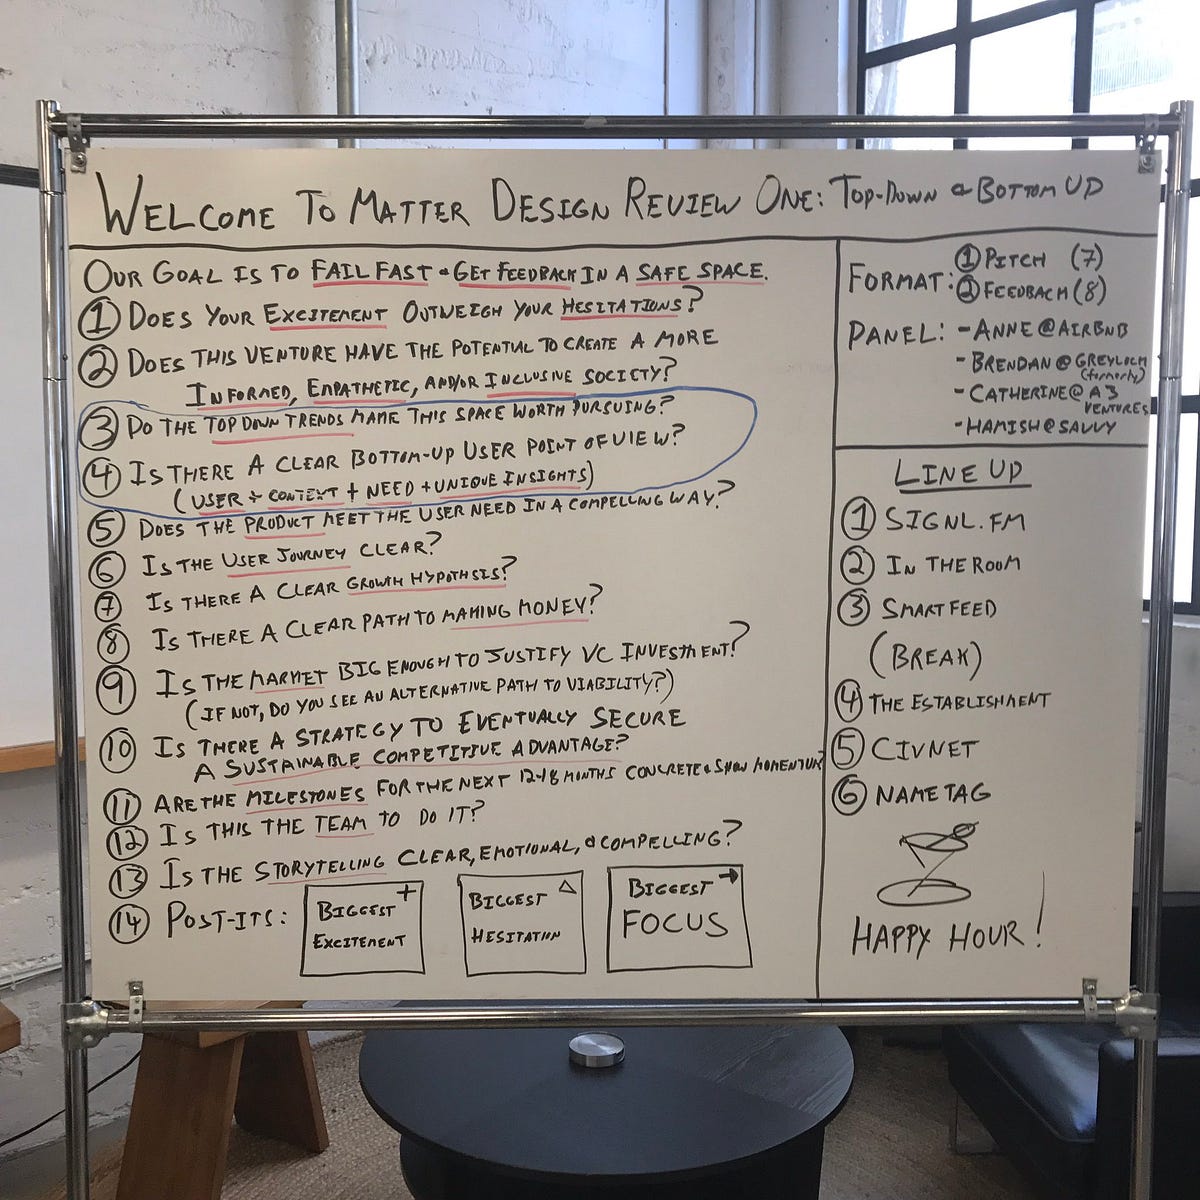 WELCOME TO MATTER DESIGN REVIEW ONE: TOP-DOWN & BOTTOM UP
OUR GOAL IS TO FAIL FAST & GET FEEDBACK IN A SAFE SPACE.
1 DOES YOUR EXCITEMENT OUTWEIGH YOUR HESITATIONS?
2 DOES THIS VENTURE HAVE THE POTENTIAL TO CREATE A MORE
INFORMED, EMPATHETIC, AND/OR INCLUSIVE SOCIETY?
3 DO THE TOP DOWN TRENDS MAKE THIS SPACE WORTH PURSUING?
4 IS THERE A CLEAR BOTTOM-UP USER POINT OF VIEW?
(USER + CONTEXT + NEED + UNIQUE INSIGHTS)
5 DOES THE PRODUCT MEET THE USER NEED IN A COMPELLING WAY?
6 IS THE USER JOURNEY CLEAR?
7 IS THERE A CLEAR GROWTH HYPOTHSIS?
8 IS THERE A CLEAR PATH TO MAKING MONEY?
9 IS THE MARKET BIG ENOUGH TO JUSTIFY VC INVESTMENT?
(IF NOT, DO YOU SEE AN ALTERNATIVE PATH TO VIABILITY?)
10 IS THERE A STRATEGY TO EVENTUALLY SECURE
A SUSTAINABLE COMPETITIVE ADVANTAGE?
11 ARE THE MILESTONES FOR THE NEXT 12-18 MONTHS CONCRETE & SHOW MOMENTUM?
12 IS THIS THE TEAM TO DO IT?
13 IS THE STORYTELLING CLEAR, EMOTIONAL, & COMPELLING?
14 POST-ITS:
BIGGEST +
EXCITEMENT
BIGGEST △
HESITATION
BIGGEST →
FOCUS
FORMAT: 1 PITCH (7)
2 FEEDBACK (8)
PANEL: - ANNE @ AIRBNB
- BRENDAN @ GREYLOCK
(formerly)
- CATHERINE @ A3
VENTURES
- HAMISH @ SAVVY
LINE UP
1 SIGNL.FM
2 IN THE ROOM
3 SMARTFEED
(BREAK)
4 THE ESTABLISHMENT
5 CIVNET
6 NAMETAG
HAPPY HOUR!